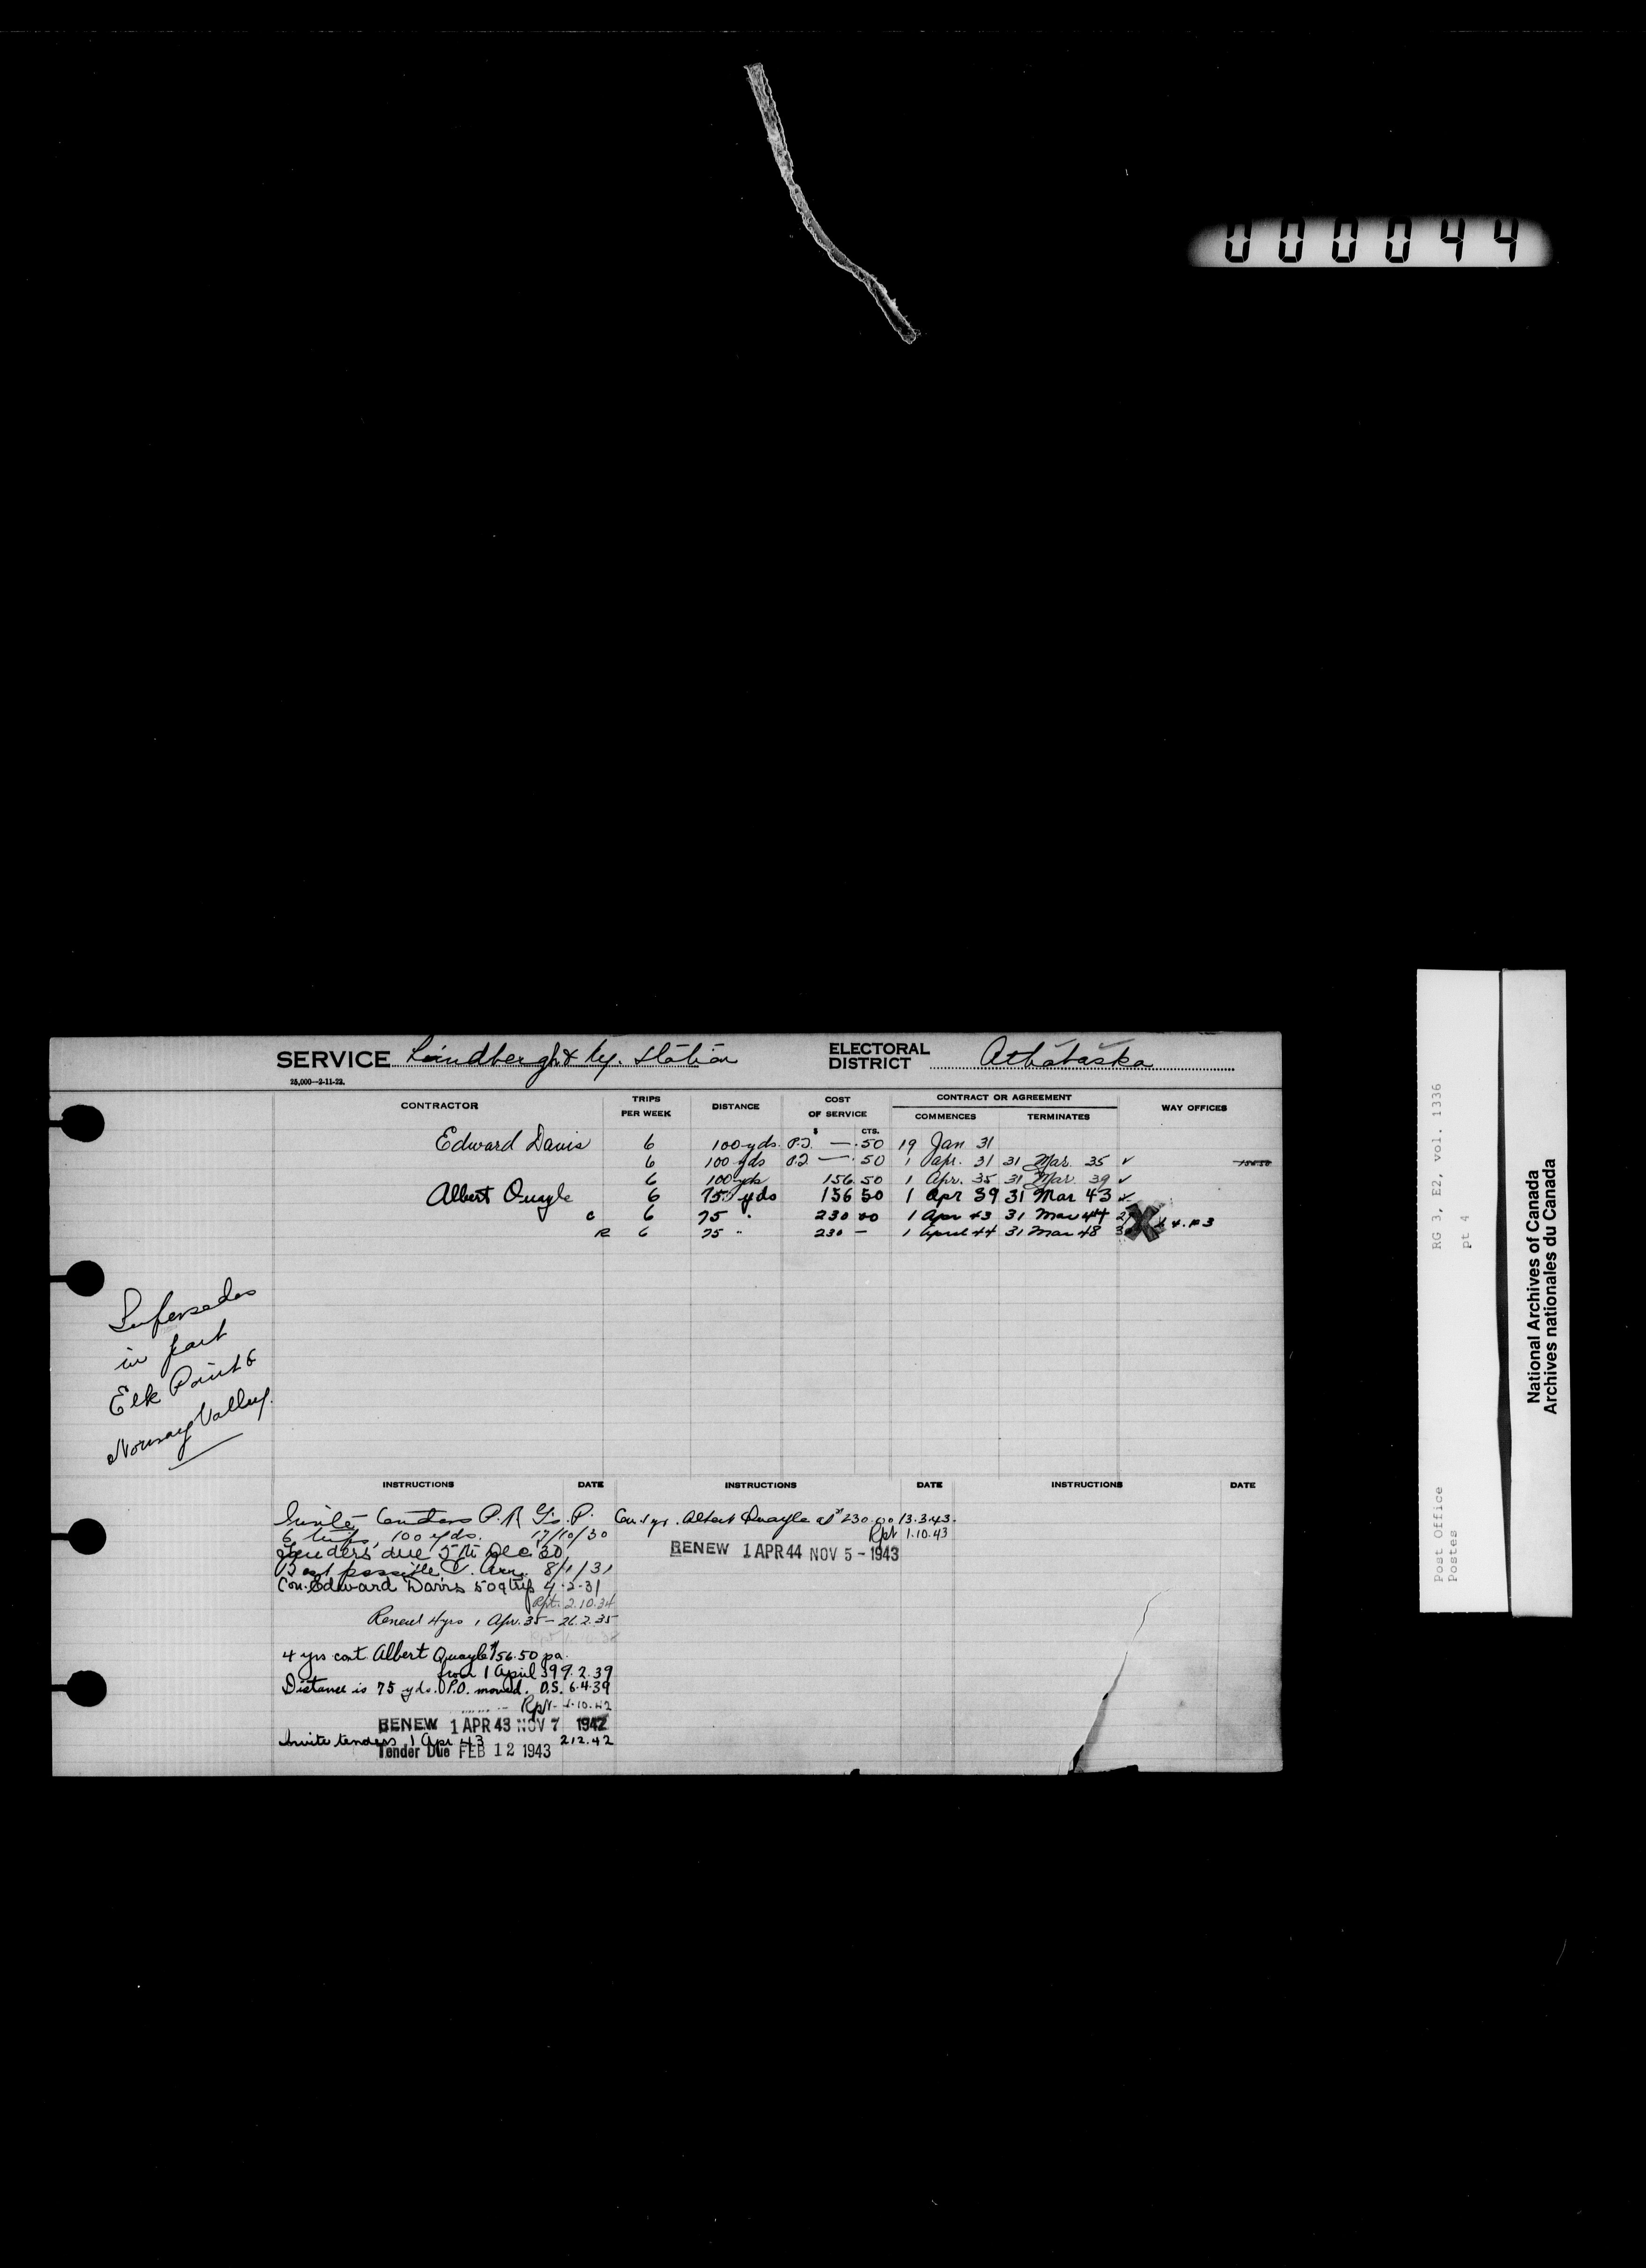 000044
SERVICE Lindbergh & Ry. Station ELECTORAL DISTRICT Athabaska
25,000—2-11-22.
CONTRACTOR TRIPS PER WEEK DISTANCE COST OF SERVICE CONTRACT OR AGREEMENT WAY OFFICES
$ CTS. COMMENCES TERMINATES
Edward Davis 6 100 yds. P.T. — .50 19 Jan 31
6 100 yds P.T. — .50 1 Apr. 31 31 Mar. 35 ✓
6 100 yds 156.50 1 Apr. 35 31 Mar. 39 ✓
Albert Quayle 6 75 yds 156 50 1 Apr 39 31 Mar 43
C 6 75 " 230 00 1 Apr 43 31 Mar 44
R 6 75 " 230 — 1 April 44 31 Mar 48
Supersedes
in part
Elk Point &
Norway Valley.
INSTRUCTIONS DATE INSTRUCTIONS DATE INSTRUCTIONS DATE
Invite tenders
6 trips, 100 yds. 17/10/30
Tenders due 5th Dec. 30
Best possible 8/1/31
Con. Edward Davis 50 a trip 4-2-31
Rpt. 2.10.34
Renewal 4 yrs 1 Apr. 35 — 26.2.35
4 yrs cont Albert Quayle $156.50 pa.
from 1 April 39 9.2.39
Distance is 75 yds. P.O. moved. D.S. 6.4.39
Rpt. 1.10.42
RENEW 1 APR 43 NOV 7 1942
Invite tenders 1 Apr 43 212.42
Tender Due FEB 12 1943
Con. 1 yr. Albert Quayle at $230.00 13.3.43.
Rpt 1.10.43
RENEW 1 APR 44 NOV 5 - 1943
Post Office
Postes
RG 3, E2, vol. 1336
pt 4
National Archives of Canada
Archives nationales du Canada